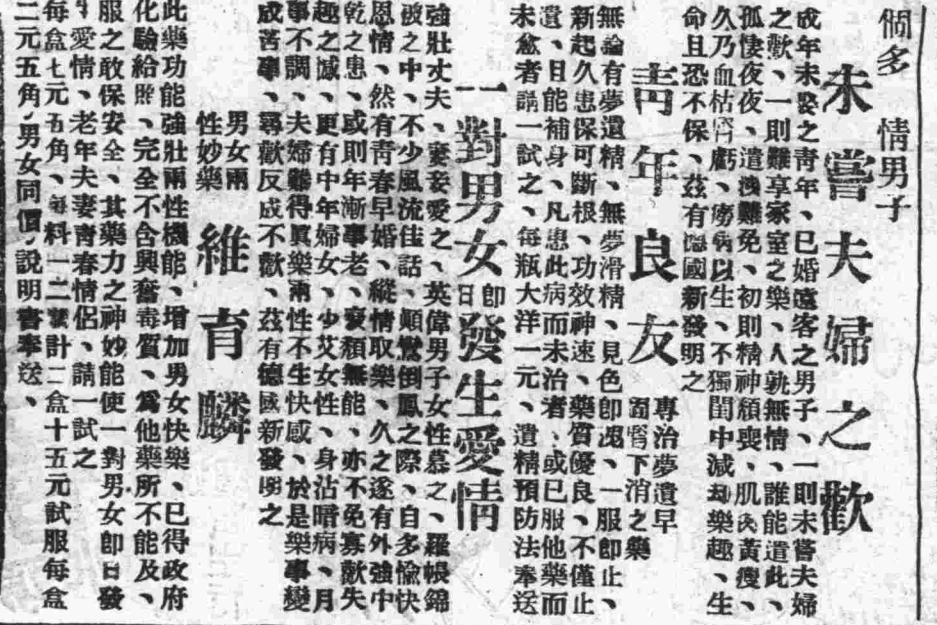 個多情男子
未嘗夫婦之歡
成年未娶之靑年、已婚遠客之男子、一則未嘗夫婦
之歡、一則難享家室之樂、人孰無情、誰能遣此、
孤悽夜夜、遺洩難免、初則精神頹喪、肌肉黃瘦、
久乃血枯腎虧、癆病以生、不獨閨中減却樂趣、生
命且恐不保、茲有德國新發明之
靑年良友
專治夢遺早
固腎下消之藥
無論有夢遺精、無夢滑精、見色卽洩、一服卽止、
新起久患保可斷根、功效神速、藥質優良、不僅止
遺、且能補身、凡患此病而未治者、或已服他藥而
未愈者請一試之、每瓶大洋一元、遺精預防法奉送
一對男女卽日發生愛情
強壯丈夫、妻妾愛之、英偉男子女性慕之、羅帳錦
被之中、不少風流佳話、顚鸞倒鳳之際、自多愉快
恩情、然有靑春早婚、縱情取樂、久之遂有外強中
乾之患、或則年漸事老、衰頹無能、亦不免寡歡失
趣之憾、更有中年婦女、少艾女性、身沾暗病、月
事不調、夫婦難得眞樂兩性不生快感、於是樂事變
成苦事、尋歡反成不歡、茲有德國新發明之
男女兩
性妙藥
維育麟
此藥功能強壯兩性機能、增加男女快樂、已得政府
化驗給照、完全不含興奮毒質、爲他藥所不能及、
服之敢保安全、其藥力之神妙能使一對男女卽日發
愛情、老年夫妻靑春情侶、請一試之
每盒七元五角、每料一二蔂計二盒十五元試服每盒
二元五角、男女同價、說明書奉送、